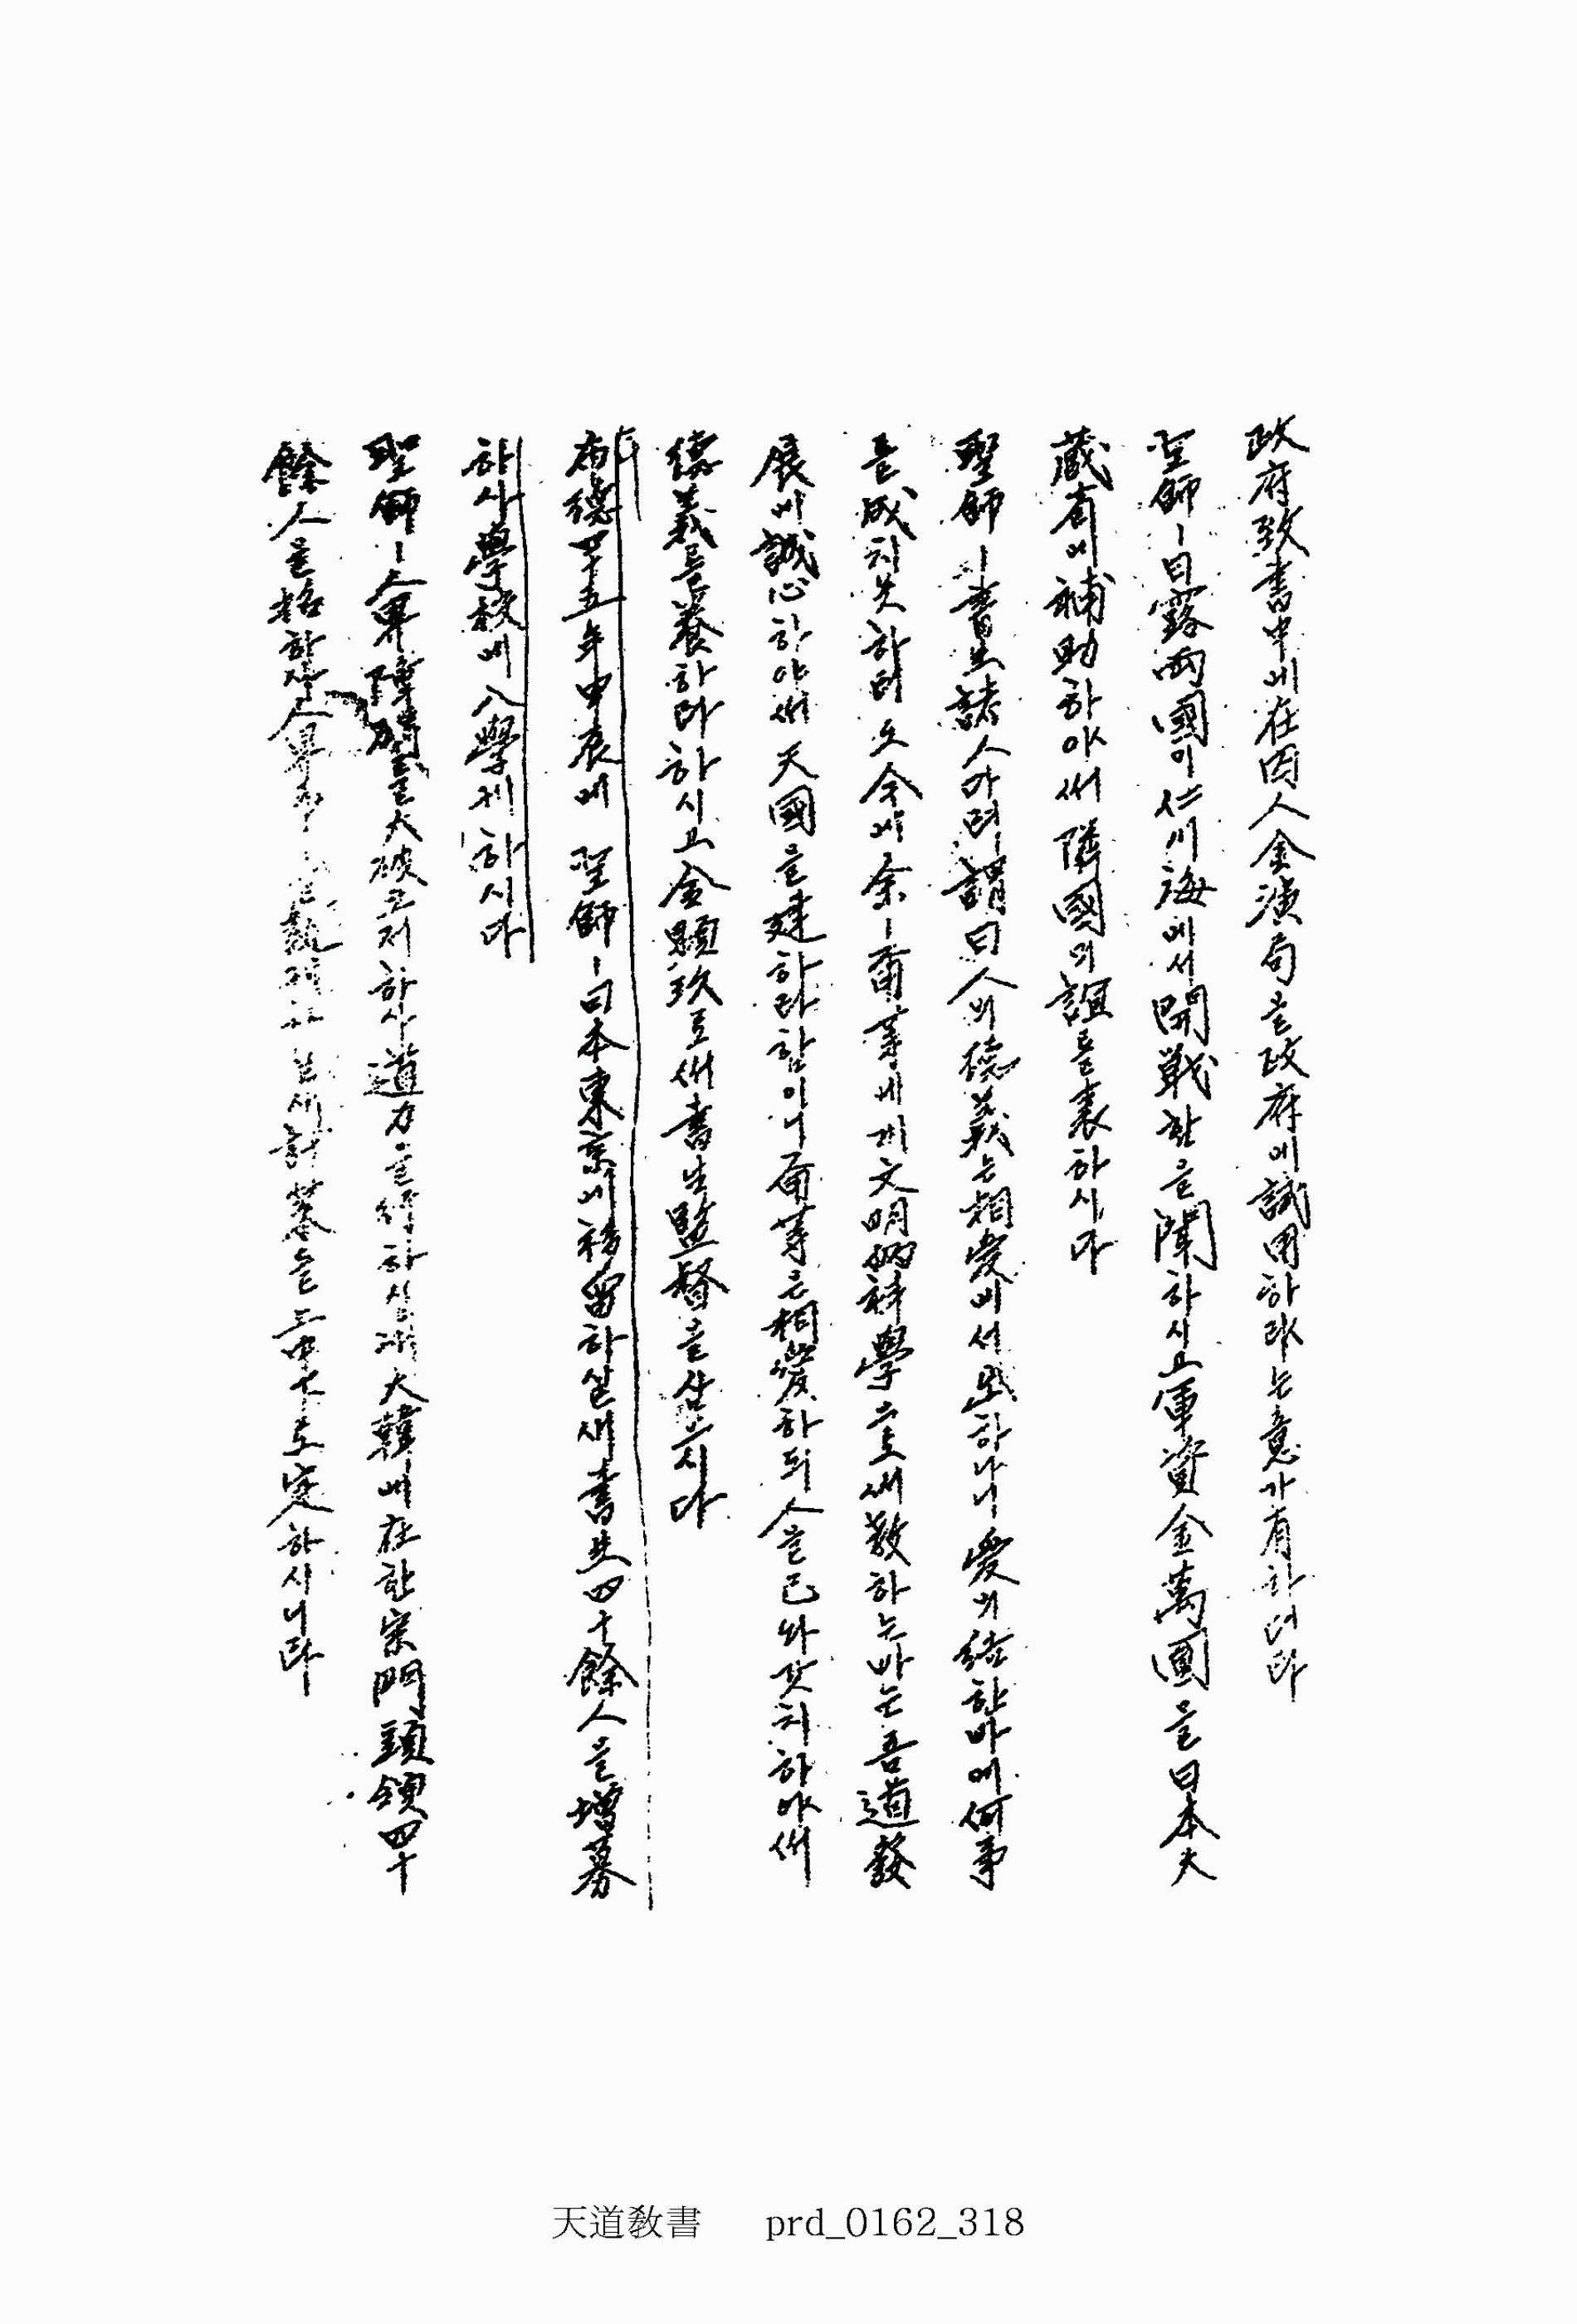 政府致書中에在因人金演局을政府에試用하라는意가有하더라
聖師ㅣ日露兩國이仁川海에서開戰함을聞하시고軍資金萬圜을日本大
藏省에補助하야써隣國의誼를表하시다
聖師ㅣ書生諸人다려謂曰人의德義는相愛에서出하나니愛의結한바에何事
를成치못하리오今에余ㅣ爾等에게文明的科學으로써敎하는바는吾道發
展에誠心하야써天國을建하라함이니爾等은相愛하되人을己와갓치하야써
德義를養하라하시고金顯玖로써書生監督을삼으시다
布德四十五年甲辰에 聖師ㅣ日本東京에移留하실새書生四十餘人을增募
하사學校에入學케하시다
聖師ㅣ 을大破코저하사道力을行하실새大韓에在한宗門頭領四十
餘人을招하사 을 計策을上中下로定하시니라
天道敎書 prd_0162_318